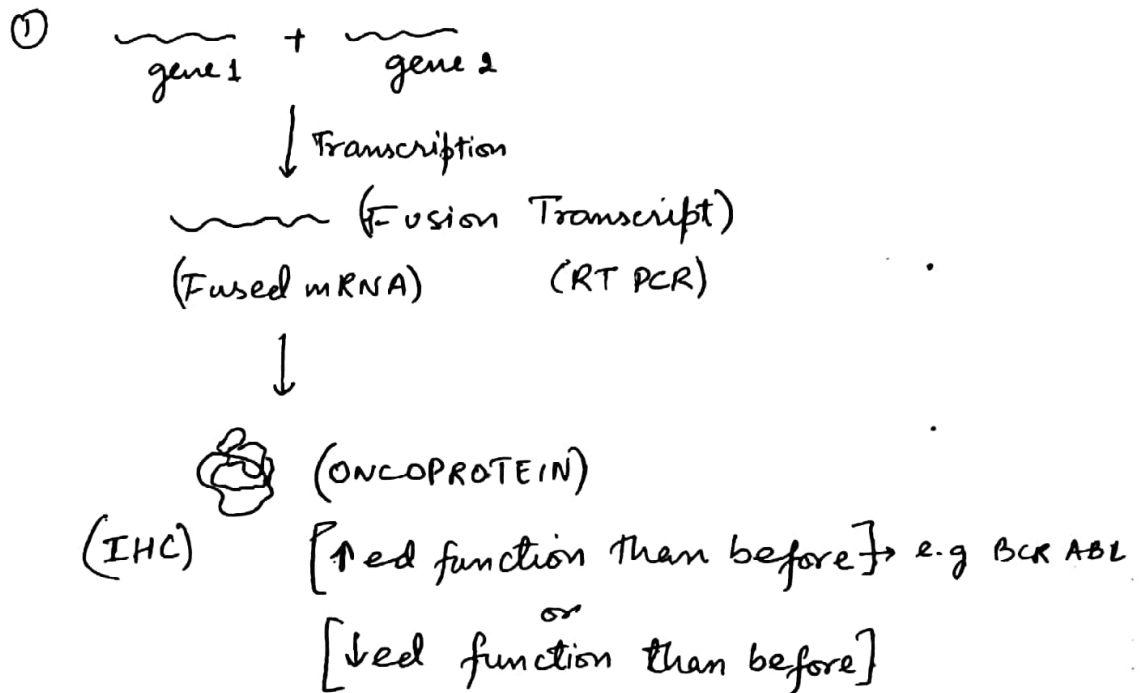 ①
+
gene 1 gene 2
↓ Transcription
(Fusion Transcript)
(Fused mRNA) (RT PCR)
↓
(ONCOPROTEIN)
(IHC) [↑ed function than before]→ e.g BCR ABL
or
[↓ed function than before]